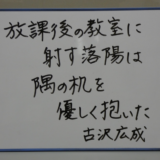 放課後の教室に
射す落陽は
隅の机を
優しく抱いた
古沢広成